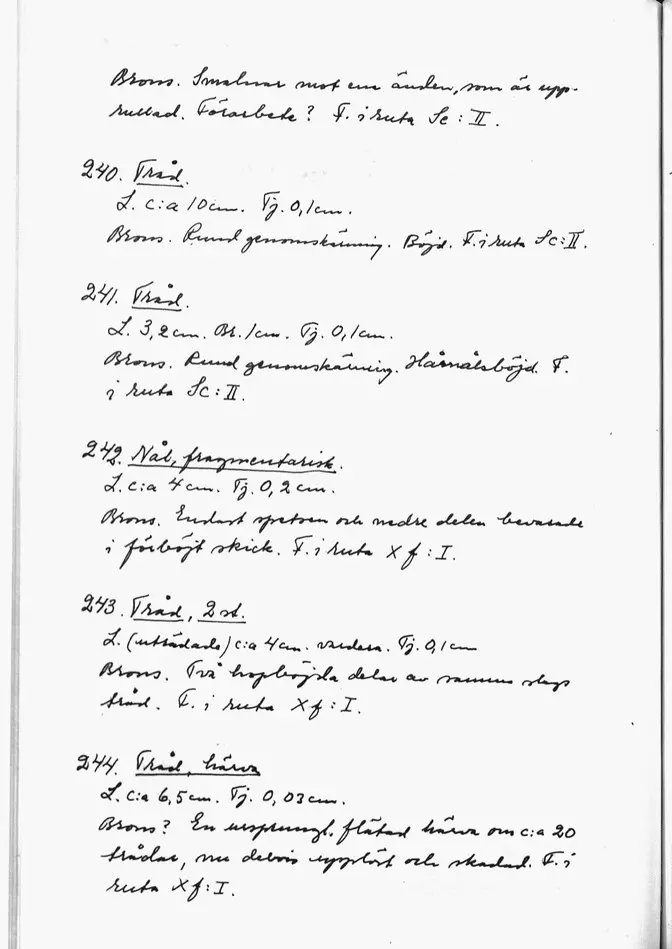 Brons. Smalnar mot ena änden, som är upp-
rullad. Förarbete? F. i ruta Sc : II.
240. Tråd.
L. c:a 10cm. Tj. 0,1cm.
Brons. Rund genomskärning. Böjd. F. i ruta Sc:II.
241. Tråd.
L. 3,2cm. Br. 1cm. Tj. 0,1cm.
Brons. Rund genomskärning. Hårnålsböjd. F.
i ruta Sc:II.
242. Nål, fragmentarisk.
L. c:a 4cm. Tj. 0,2cm.
Brons. Endast spetsen och nedre delen bevarade
i förböjt skick. F. i ruta Xf : I.
243. Tråd, 2 st.
L. (uträtade) c:a 4cm. vardera. Tj. 0,1cm
Brons. Två hopböjda delar av samma slags
tråd. F. i ruta Xf : I.
244. Tråd, härva
L. c:a 6,5cm. Tj. 0,03cm.
Brons? En ursprungl. flätad härva om c:a 20
trådar, nu delvis upplöst och skadad. F. i
ruta Xf: I.